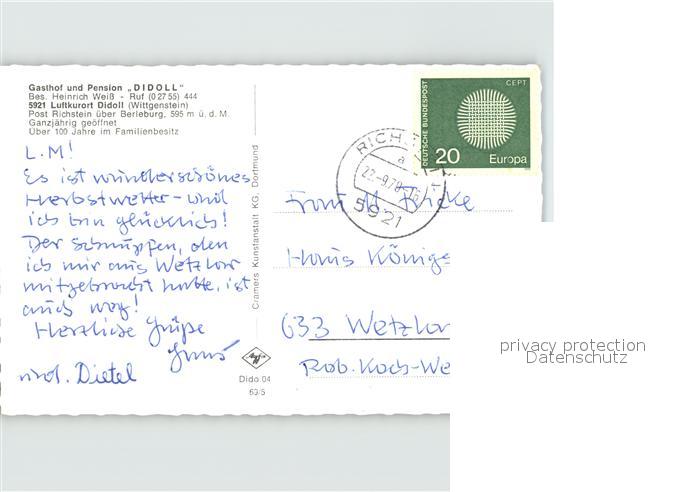 Gasthof und Pension „DIDOLL"
Bes. Heinrich Weiß - Ruf (0 27 55) 444
5921 Luftkurort Didoll (Wittgenstein)
Post Richstein über Berleburg, 595 m ü. d. M.
Ganzjährig geöffnet
Über 100 Jahre im Familienbesitz
L. M!
Es ist wunderschönes
Herbstwetter - und
ich bin glücklich!
Der Schnuppen, den
ich mir aus Wetzlar
mitgebracht hatte, ist
auch weg!
Herzliche Grüße
und. Dietel
Cramers Kunstanstalt KG, Dortmund
Dido 04
63/5
DEUTSCHE BUNDESPOST
CEPT
20
Europa
a
5921
Frau M. Fricke
Haus Königs
633 Wetzlar
Rob. Koch-We
privacy protection
Datenschutz